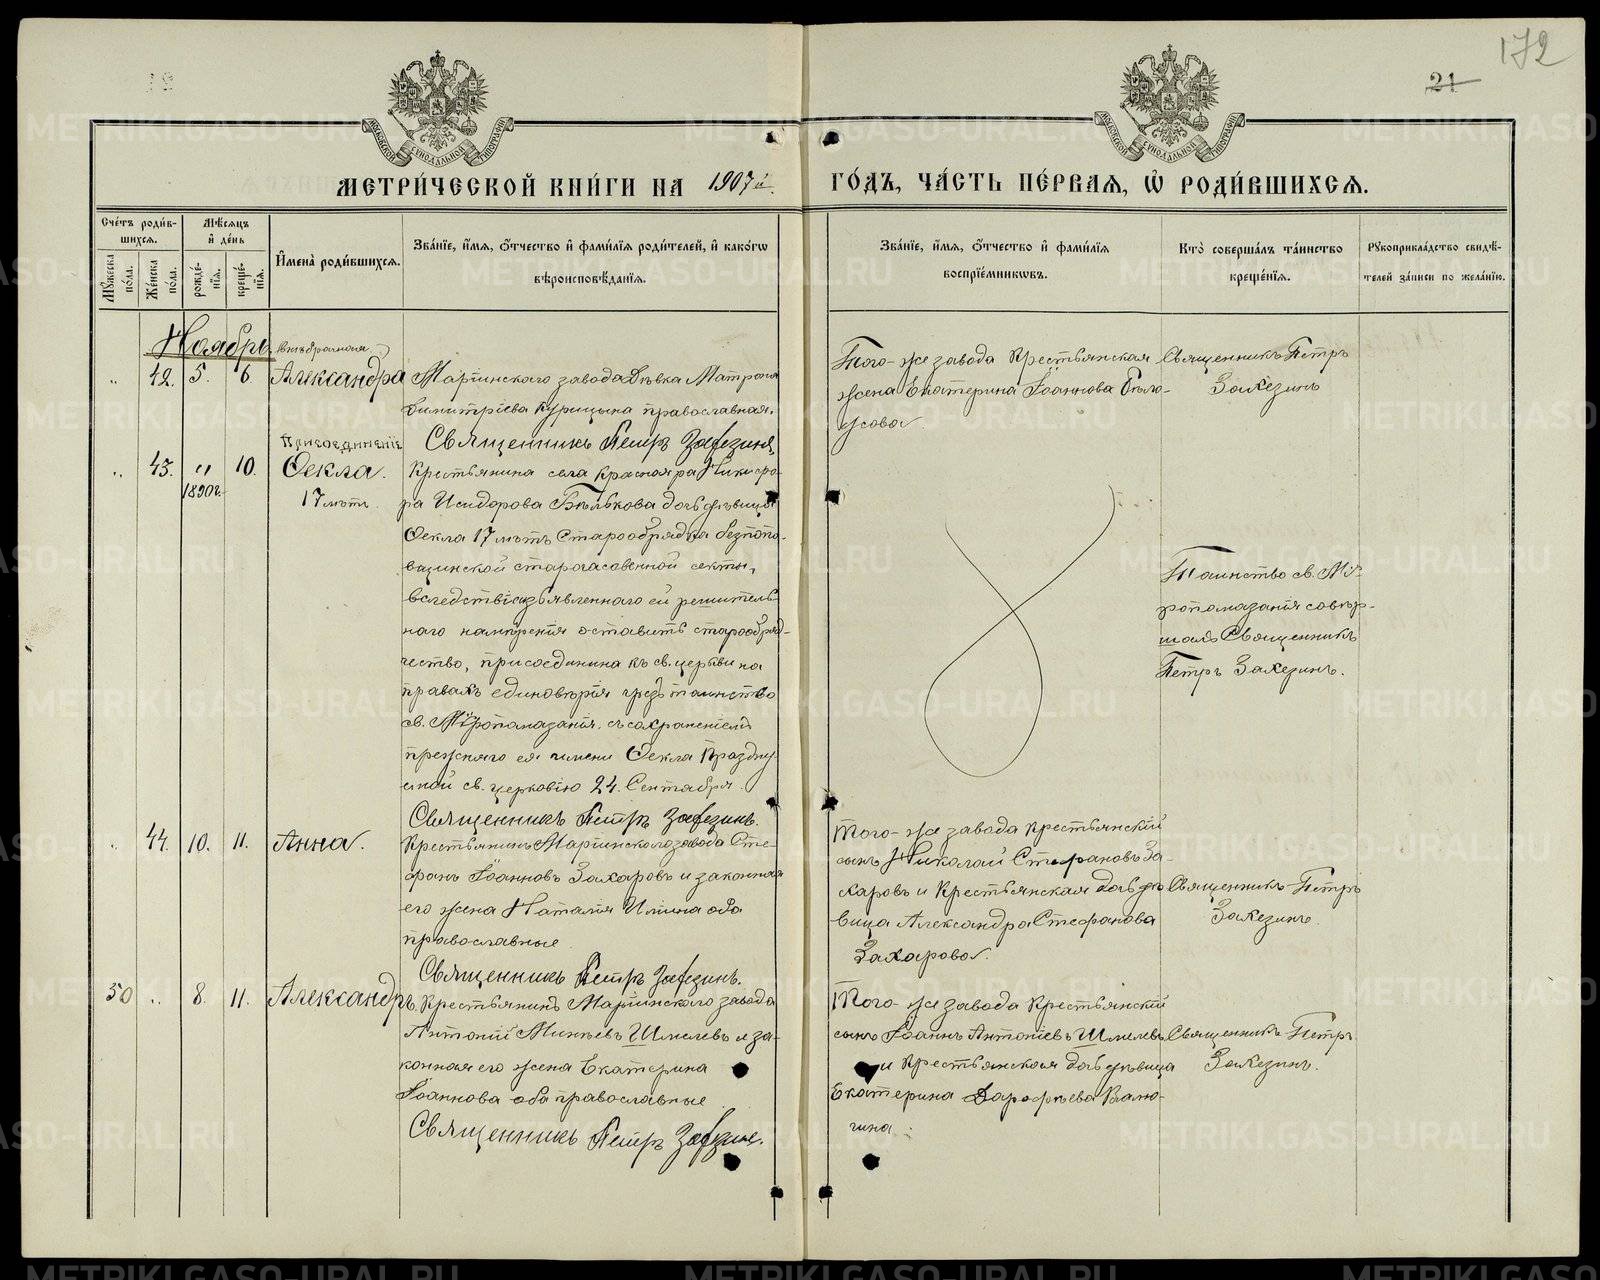 172
21
МЕТРИ́ЧЕСКОЙ КНИ́ГИ НА 1907 й.
ГО́ДЪ, ЧА́СТЬ ПЕ́РВАЯ, Ѡ҆ РОДИ́ВШИХСЯ.
Сче́тъ роди́в-
шихся.
Му́жеска по́ла.
Же́нска по́ла.
Мѣ́сяцъ
и҆ де́нь
рожде́-
нїя.
креще́-
нїя.
И҆мена̀ роди́вшихся.
Зва́нїе, и҆́мя, ѻ҆́тчество и҆ фами́лїя роди́телей, и҆ како́гѡ
вѣроисповѣ́данїя.
Зва́нїе, и҆́мя, ѻ҆́тчество и҆ фами́лїя
воспрїе́мникѡвъ.
Кто̀ соверша́лъ та́инство
креще́нїя.
Рꙋкоприкла́дство свидѣ́-
телей за́писи по жела́нїю.
Ноябрь
Внѣбрачная
" 42. 5. 6. Александра
Маріинскаго завода Дѣвка Матрона
Димитріева Курицына православная.
Священникъ Петръ Залезинъ
Того-же завода Крестьянская
жена Екатерина Іоаннова Бѣло-
усова
Священникъ Петръ
Залезинъ
Присоединеніе
" 43. " 10. Ѳекла.
1890г. 17 лѣтъ
Крестьянина села Краснояра Никифо-
ра Исидорова Бѣлькова дочь дѣвица
Ѳекла 17 лѣтъ Старообрядка безпопо-
вщинской старочасовенной секты,
вследствіе изъявленнаго ей рѣшитель-
наго намѣренія оставить старообряд-
чество, присоединена къ св. церкви на
правахъ единовѣрія чрезъ таинство
св. Мѵропомазанія, съ сохраненіемъ
прежняго ея имени Ѳекла Праздну-
емой св. церковію 24 Сентября.
Священникъ Петръ Залезинъ.
Таинство св. Мѵ-
ропомазанія совер-
шалъ Священникъ
Петръ Залезинъ.
" 44. 10. 11. Анна.
Крестьянинъ Маріинскаго завода Сте-
фанъ Іоанновъ Захаровъ и законная
его жена Наталія Ильина оба
православные
Священникъ Петръ Залезинъ.
Того-же завода Крестьянскій
сынъ Николай Стефановъ За-
харовъ и Крестьянская дочь дѣ-
вица Александра Стефанова
Захарова.
Священникъ Петръ
Залезинъ.
50 " 8. 11. Александръ.
Крестьянинъ Маріинскаго завода
Антоній Минѣевъ Шмелевъ и за-
конная его жена Екатерина
Іоаннова оба православные
Священникъ Петръ Залезинъ.
Того-же завода Крестьянскій
сынъ Іоаннъ Антоніевъ Шмелевъ
и Крестьянская дочь дѣвица
Екатерина Дорофѣева Валю-
гина.
Священникъ Петръ
Залезинъ.
METRIKI.GASO-URAL.RU